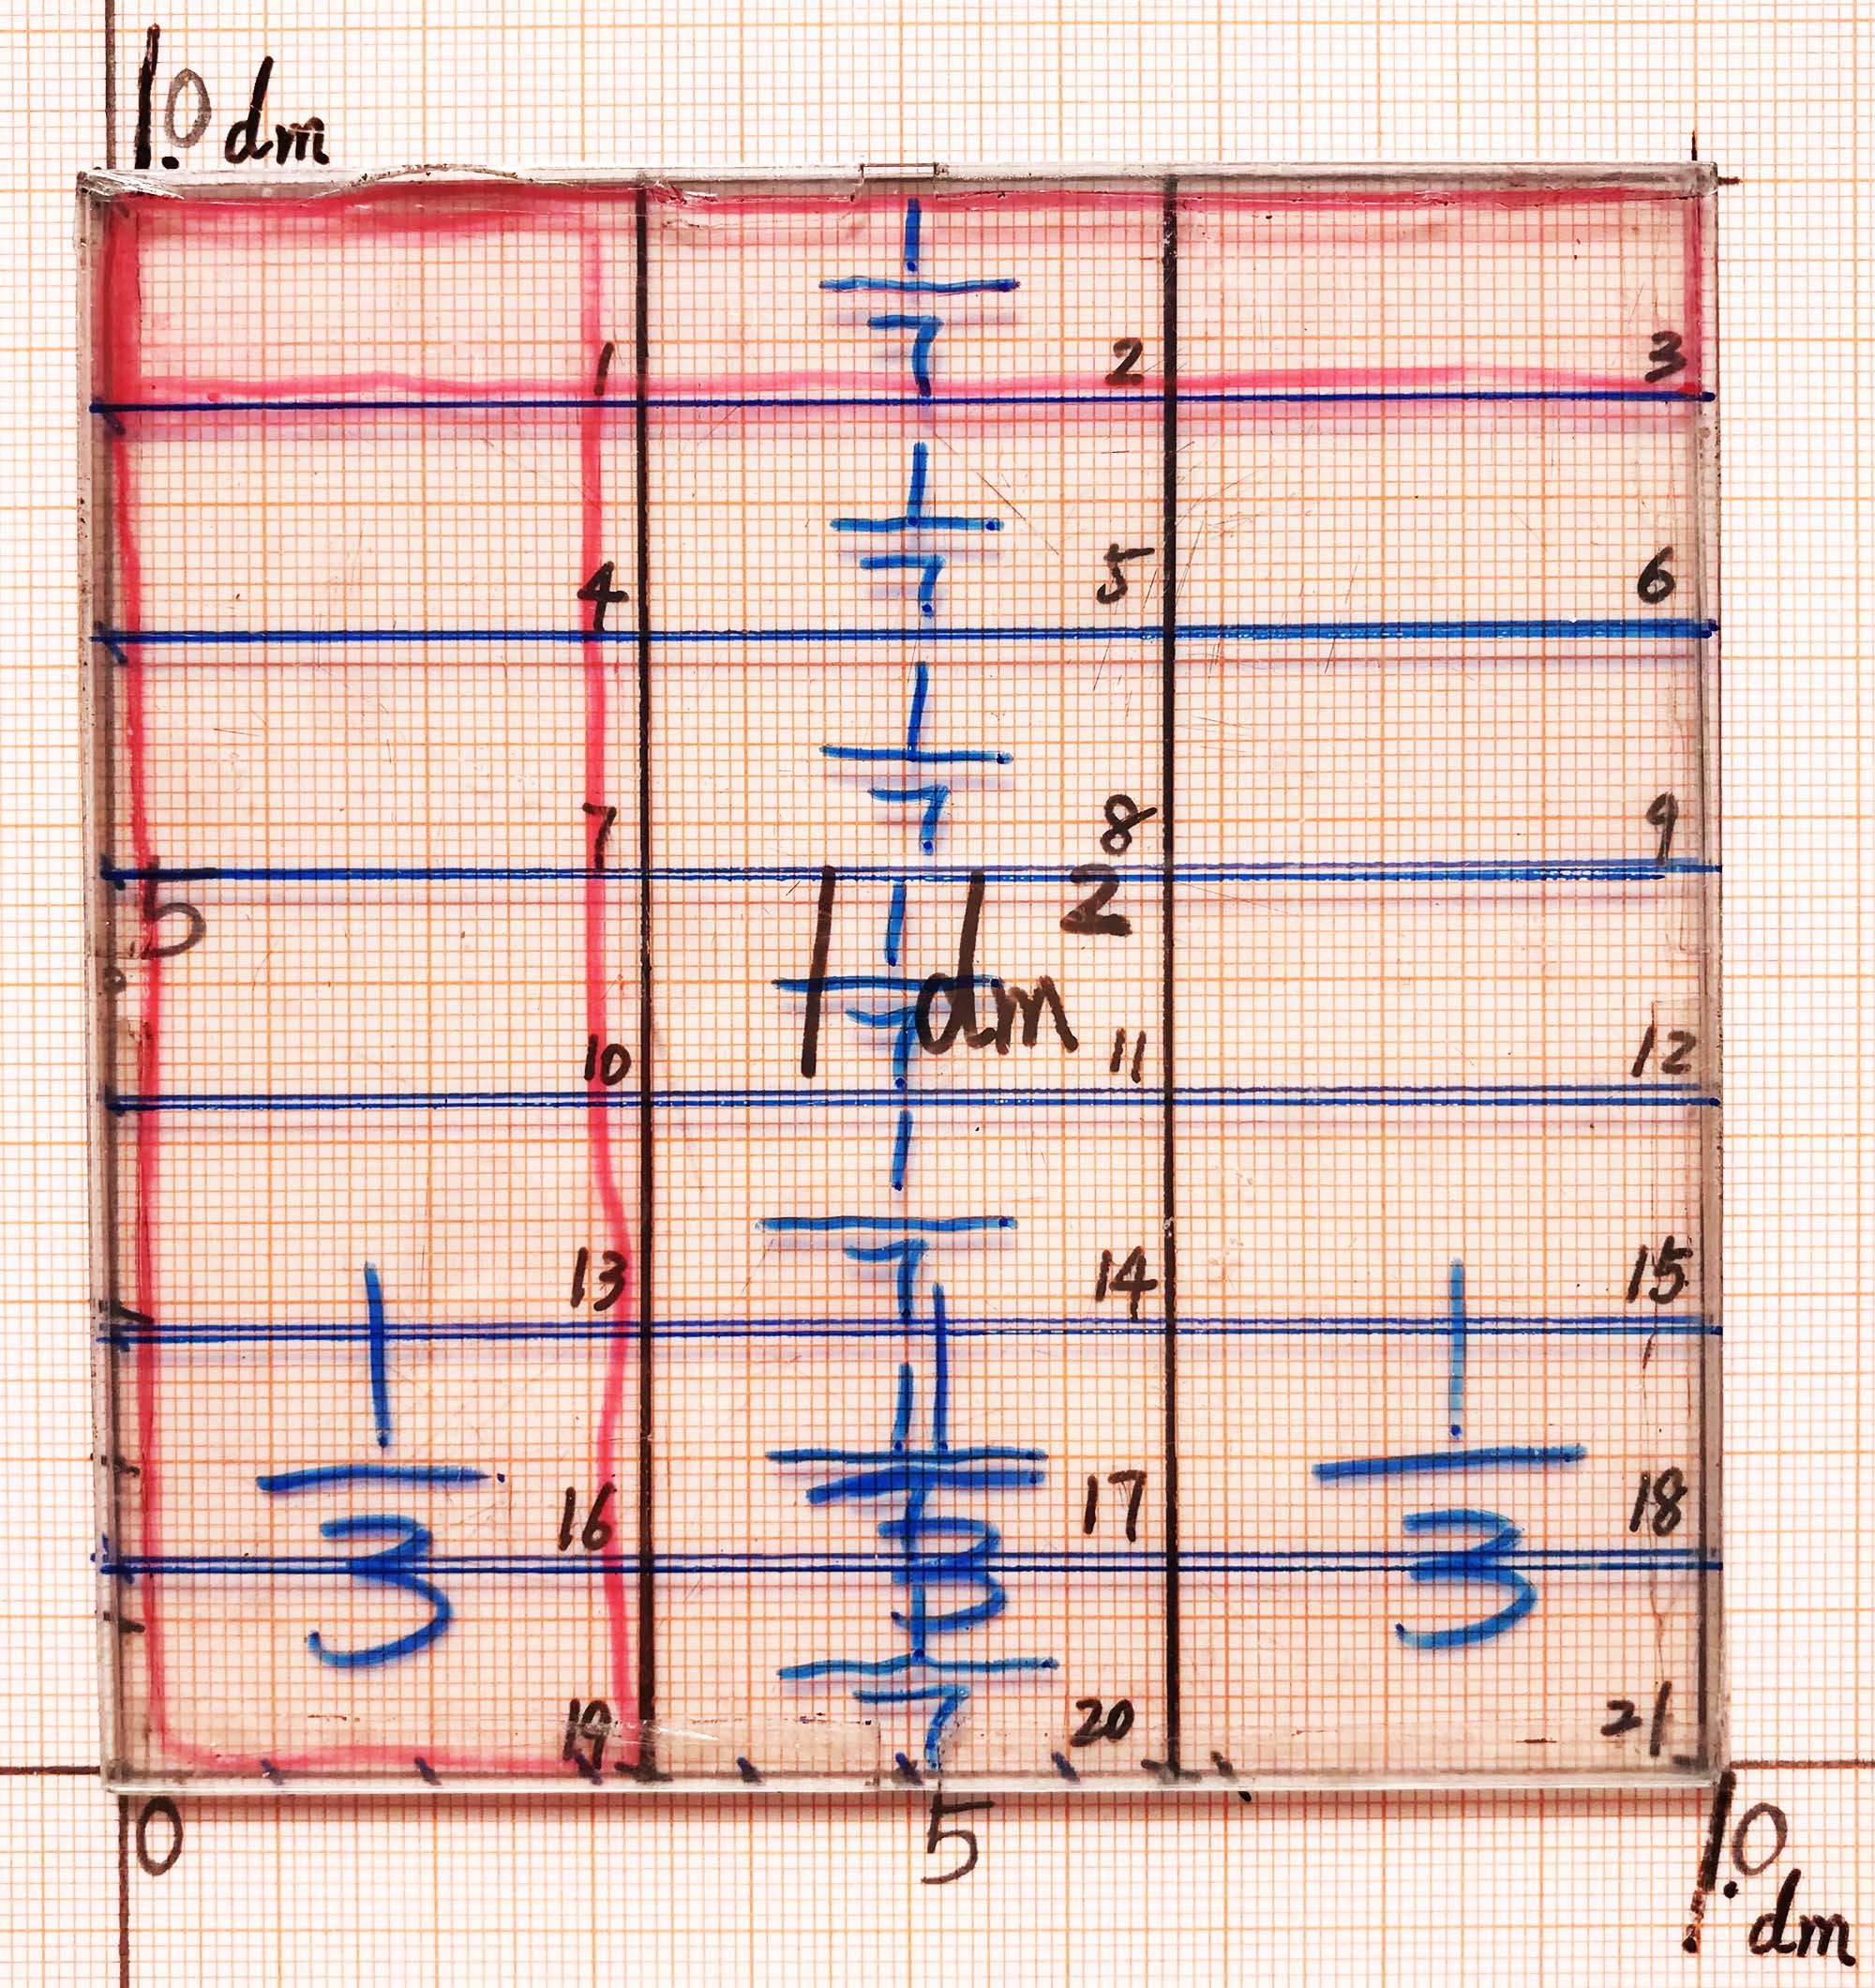 1.0 dm
1
7
1 2 3
1
7
4 5 6
1
7
7 8 9
5
1 dm2
1
7
10 11 12
1
7
13 14 15
1 1 1
3 3 3
1
7
16 17 18
1
7
19 20 21
0 5 1.0 dm